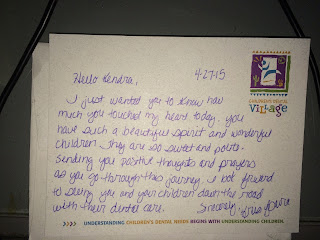 Hello Kendra,
4-27-15
CHILDREN'S DENTAL
Village
I just wanted you to know how
much you touched my heart today. you
have such a beautiful spirit and wonderful
children. They are so sweet and polite-
sending you positive thoughts and prayers
as you go through this journey. I look forward
to seeing you and your children down the road
with their dental care. Sincerely,
UNDERSTANDING CHILDREN'S DENTAL NEEDS BEGINS WITH UNDERSTANDING CHILDREN.